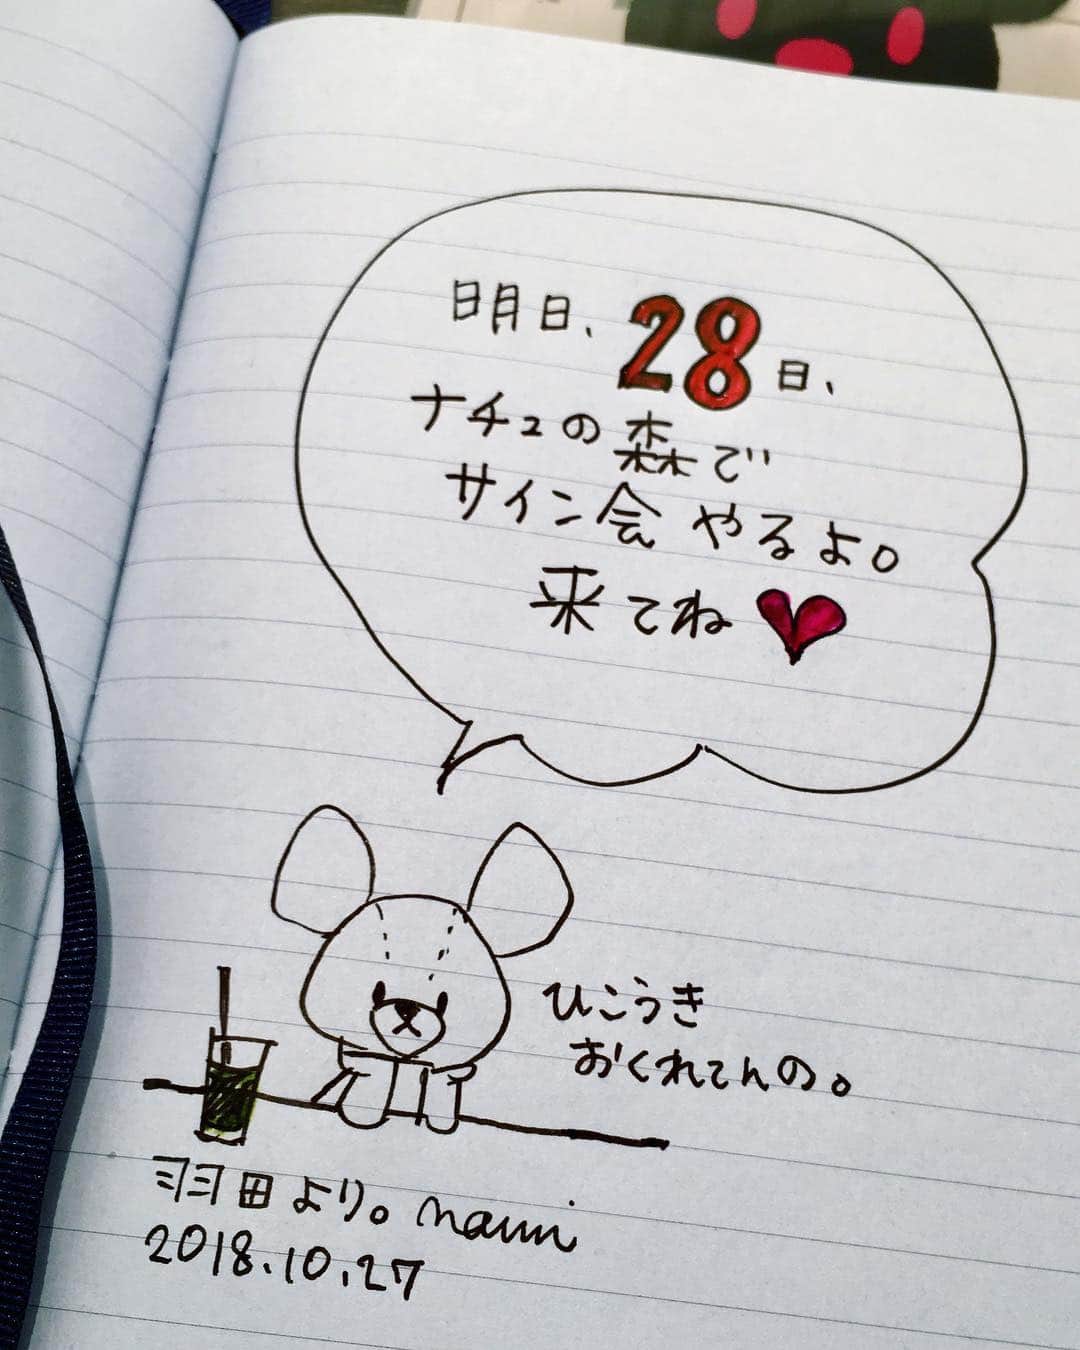 明日、28日、
ナチュの森で
サイン会やるよ。
来てね
ひこうき
おくれてんの。
羽田より。nami
2018.10.27